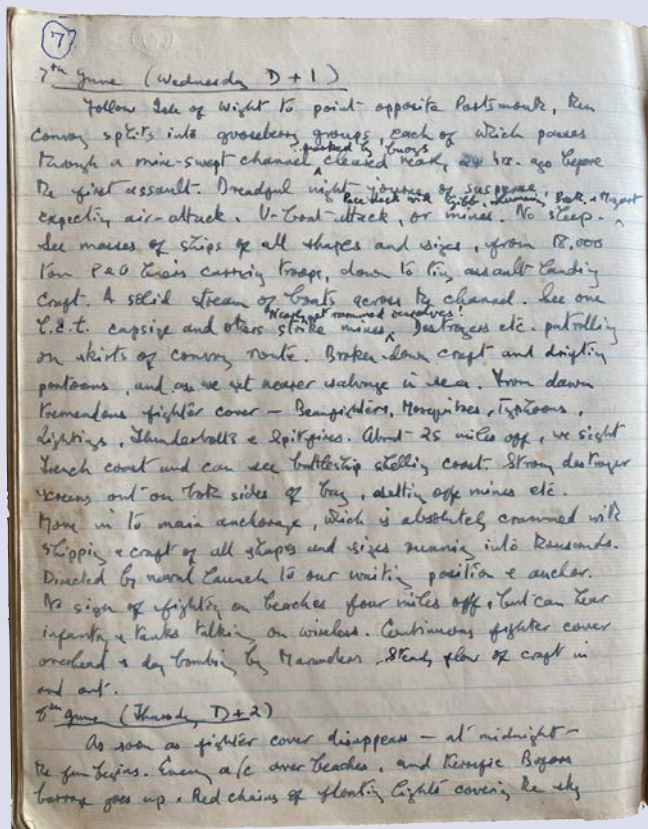 7
7th June (Wednesday D + 1)
Follow Isle of Wight to point opposite Portsmouth, then
convoy splits into gooseberry groups, each of which passes
marked by buoys
through a mine-swept channel cleared nearly 24 hrs. ago before
the first assault. Dreadful night journey of suspense,
Pace deck with
expecting air-attack, U-boat-attack, or mines. No sleep.
See masses of ships of all shapes and sizes, from 18,000
ton P&O liners carrying troops, down to tiny assault landing
craft. A solid stream of boats across the channel. See one
Nearly get rammed ourselves!
L.C.T. capsize and others strike mines. Destroyers etc. patrolling
on skirts of convoy route. Broken-down craft and drifting
pontoons, and as we get nearer salvage in sea. From dawn
tremendous fighter cover – Beaufighters, Mosquitoes, Typhoons,
Lightings, Thunderbolts & Spitfires. About 25 miles off, we sight
French coast and can see battleship shelling coast. Strong destroyer
screens out on both sides of bay, setting off mines etc.
Move in to main anchorage, which is absolutely crammed with
shipping & craft of all shapes and sizes running into thousands.
Directed by naval launch to our waiting position & anchor.
No sign of fighting on beaches four miles off, but can hear
infantry & tanks talking on wireless. Continuous fighter cover
overhead & day bombing by Marauders. Steady flow of craft in
and out.
8th June (Thursday D+2)
As soon as fighter cover disappears – at midnight –
the fun begins. Enemy a/c over beaches, and terrific Bofors
barrage goes up. Red chains of floating lights covering the sky